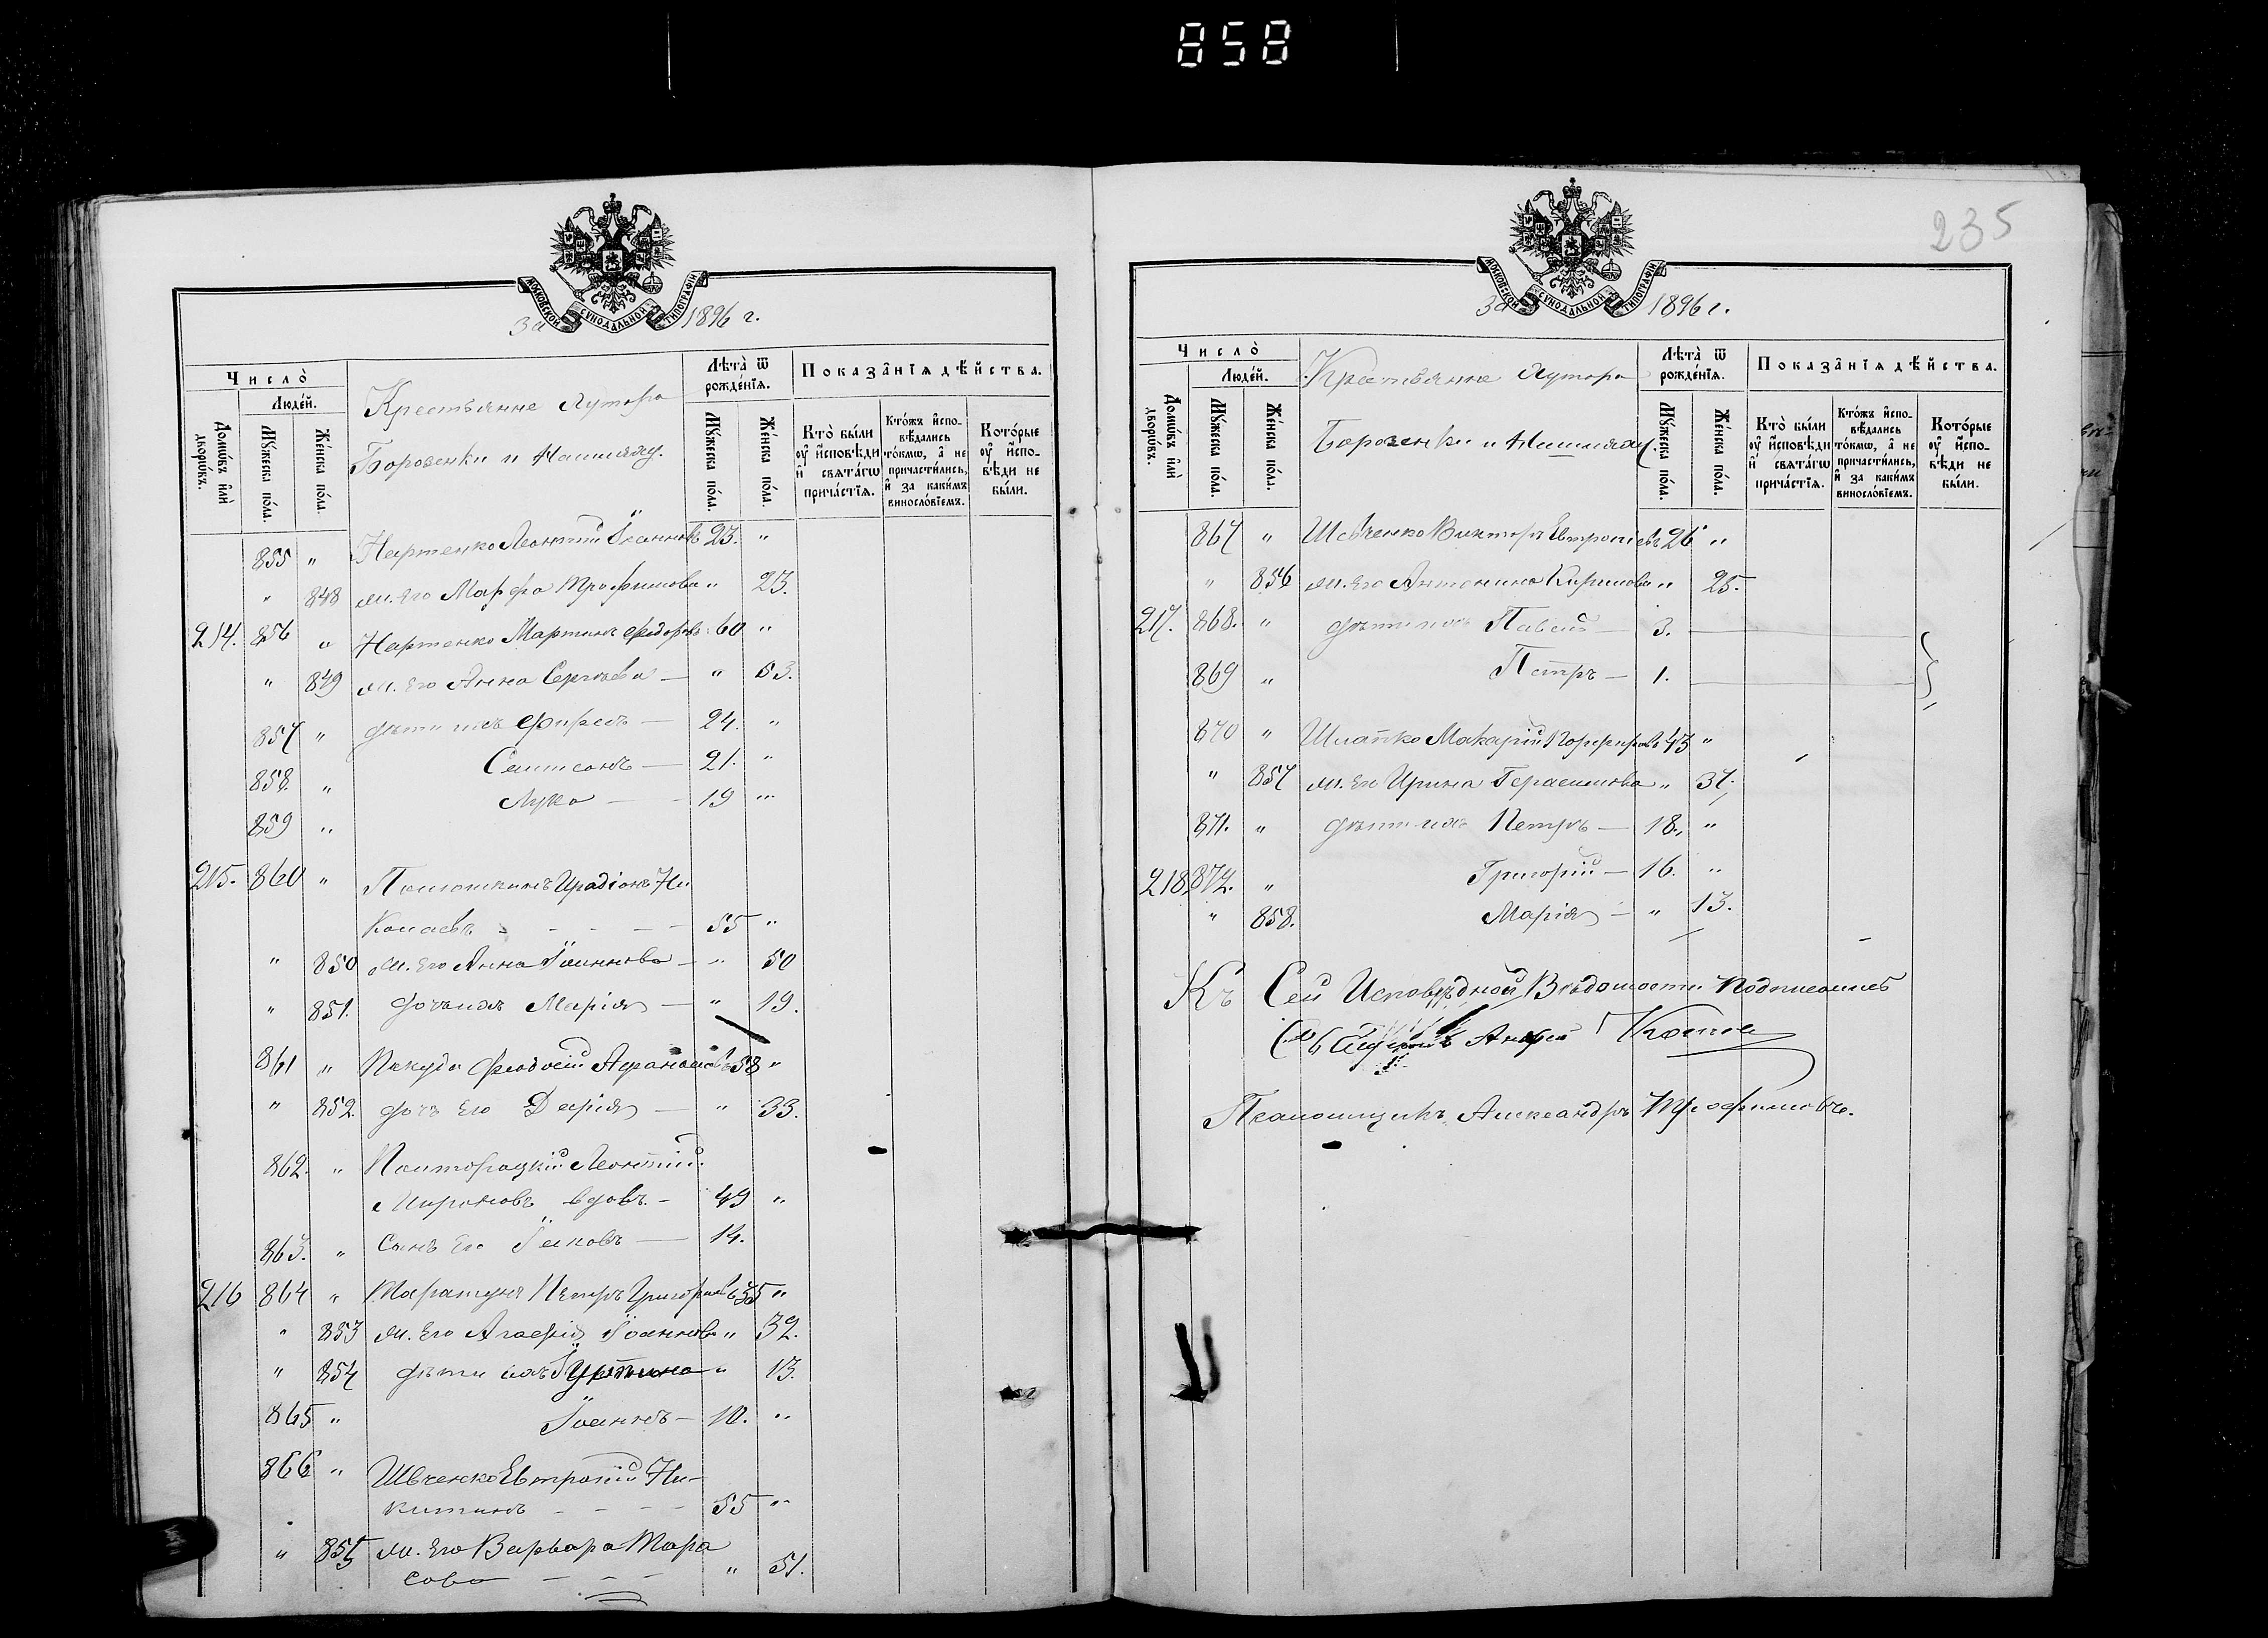 858
МОСКОВСКОЙ СУНОДАЛЬНОЙ ТИПОГРАФІИ
За 1896 г.
Число̀
Людей.
Домѡвъ илѝ дворѡвъ.
Мꙋжеска по́ла.
Же́нска по́ла.
Крестьянне Хутора
Борозенки и
Лѣта̀ ѿ рожде́нїѧ.
Мꙋжеска по́ла.
Же́нска по́ла.
Показанїѧ дѣйства.
Кто̀ были ᲂу҆ исповѣди и҆ свѧта́гѡ прича́стїѧ.
Кто́жъ исповѣдались то́кмѡ, а҆ не причасти́лись, и҆ за каки́мъ винослові́емъ.
Кото́рые ᲂу҆ исповѣди не бы́ли.
855 " Нартенко Леонтій Іоанновъ 23. "
" 848 ж. его Марфа Трофимова " 23.
214. 856 " Нартенко Мартинъ Федоровъ 60 "
" 849 ж. его Анна Сергѣева — " 53.
857 " дѣти ихъ — 24. "
858. " Сампсонъ — 21. "
859 " Лука — 19 "
215. 860 " Иродіонъ Ни
колаевъ - - - - 55 "
" 850 ж. его Анна Іоаннова — " 50
" 851. дочь ихъ Марія — " 19.
861 " Пекуда Феодосій 58 "
" 852. дочь его Дарія — " 33.
862. " Полторацкій Леонтій
Мироновъ вдовъ. — 49 "
863. " Сынъ его Іаковъ — 14.
216 864 " Петръ Григорьевъ 35 "
" 853 ж. его Агафія Іоаннова " 32.
" 854 дѣти ихъ " 13.
865 " Іоаннъ — 10. "
866 " Швченко Евтропій Ни-
китинъ - - - - 55 "
" 855 ж. его Варвара Тара
сова — — — " 51.
235
МОСКОВСКОЙ СУНОДАЛЬНОЙ ТИПОГРАФІИ
За 1896 г.
Число̀
Людей.
Домѡвъ илѝ дворѡвъ.
Мꙋжеска по́ла.
Же́нска по́ла.
Крестьянне Хутора
Борозенки и
Лѣта̀ ѿ рожде́нїѧ.
Мꙋжеска по́ла.
Же́нска по́ла.
Показанїѧ дѣйства.
Кто̀ были ᲂу҆ исповѣди и҆ свѧта́гѡ прича́стїѧ.
Кто́жъ исповѣдались то́кмѡ, а҆ не причасти́лись, и҆ за каки́мъ винослові́емъ.
Кото́рые ᲂу҆ исповѣди не бы́ли.
867 " Шевченко Викторъ Евтропіевъ 26 "
" 856 ж. его Антонина " 25.
217. 868. " дѣти ихъ Павелъ — 3.
869 " Петръ — 1.
870 " Шлапко Макарій Порфировъ 43 "
" 857 ж. его Ирина Герасимова " 37.
871. " дѣти ихъ Петръ — 18. "
218. 872. " Григорій — 16. "
" 858. Марія — " 13.
Къ Сей Исповѣдной Вѣдомости подписались
Андрей
Псаломщикъ Александръ Трофимовъ.